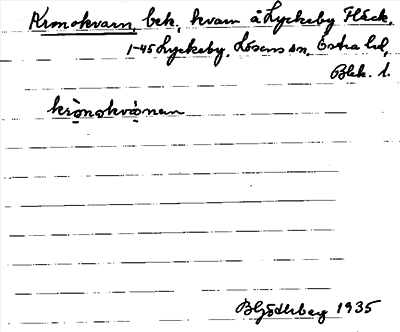 Kronokvarn, bek. kvarn å Lyckeby Fläck,
1-45 Lyckeby, Lösens sn, Östra hd,
Blek. l.
krònokvǫ̀nan
B Götlberg 1935